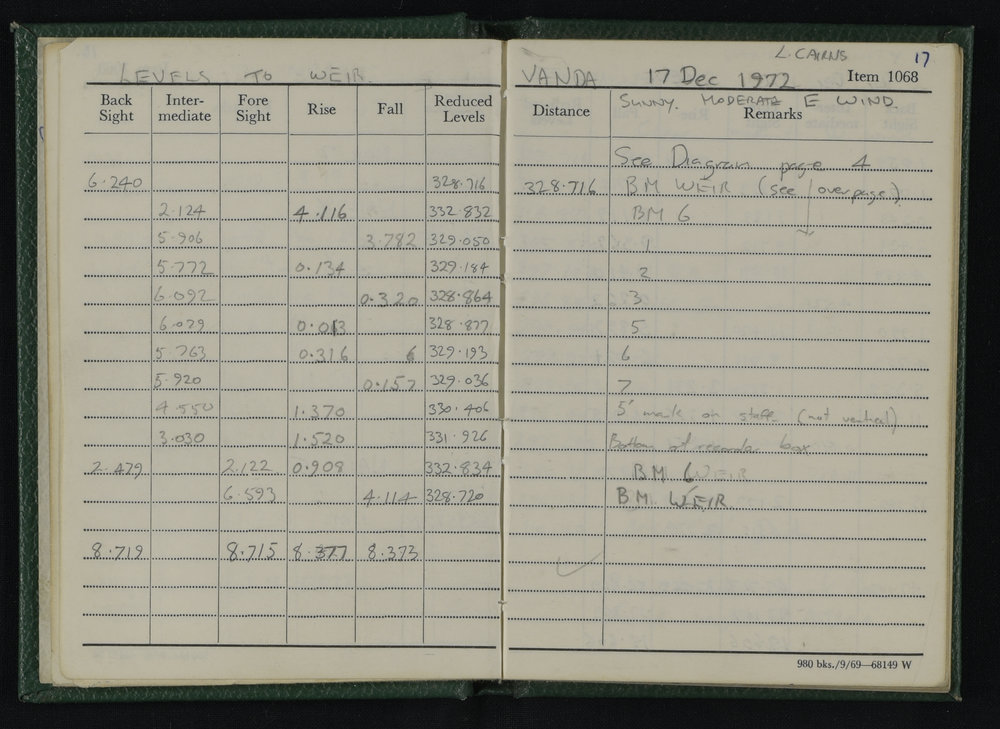 L. CAIRNS 17
LEVELS TO WEIR. VANDA 17 Dec 1972 Item 1068
Back Sight Inter-mediate Fore Sight Rise Fall Reduced Levels Distance Remarks
SUNNY. MODERATE E WIND.
See Diagram page 4
6.240 328.716 328.716 BM WEIR (see overpage)
2.124 4.116 332.832 BM 6
5.906 3.782 329.050 1
5.772 0.134 329.184 2
6.092 0.320 328.864 3
6.079 0.013 328.877 5
5.763 0.316 6 329.193 6
5.920 0.157 329.036 7
4.550 1.370 330.406 5' mark on staff (not vertical)
3.030 1.520 331.926 Bottom of recorder box
2.479 2.122 0.908 332.834 BM 6 WEIR
6.593 4.114 328.720 BM WEIR.
8.719 8.715 8.377 8.373
980 bks./9/69—68149 W